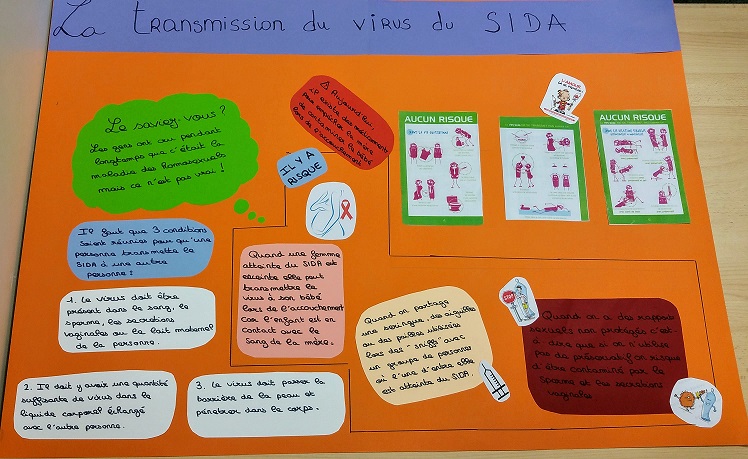 La transmission du virus du SIDA
Le saviez-vous ?
Les gens ont cru pendant
longtemps que c'était la
maladie des homosexuels
mais ce n'est pas vrai !
⚠ Aujourd'hui,
il existe des médicaments
pour empêcher la mère
de contaminer le bébé
lors de l'accouchement
IL Y A
RISQUE
Il faut que 3 conditions
soient réunies pour qu'une
personne transmette le
SIDA à une autre
personne :
1. Le virus doit être
présent dans le sang, le
sperme, les secrétions
vaginales ou le lait maternel
de la personne.
2. Il doit y avoir une quantité
suffisante de virus dans le
liquide corporel échangé
avec l'autre personne.
3. Le virus doit passer la
barrière de la peau et
pénétrer dans le corps.
Quand une femme
atteinte du SIDA est
enceinte elle peut
transmettre le
virus à son bébé
lors de l'accouchement
car l'enfant est en
contact avec le
sang de la mère.
AUCUN RISQUE
AUCUN RISQUE
Quand on partage
une seringue, des aiguilles
ou des pailles utilisées
lors des "sniffs" avec
un groupe de personnes
où l'une d'entre elle
est atteinte du SIDA.
STOP
Quand on a des rapports
sexuels non protégés c'est-
à dire que si on n'utilise
pas de préservatif on risque
d'être contaminé par le
sperme et les secrétions
vaginales